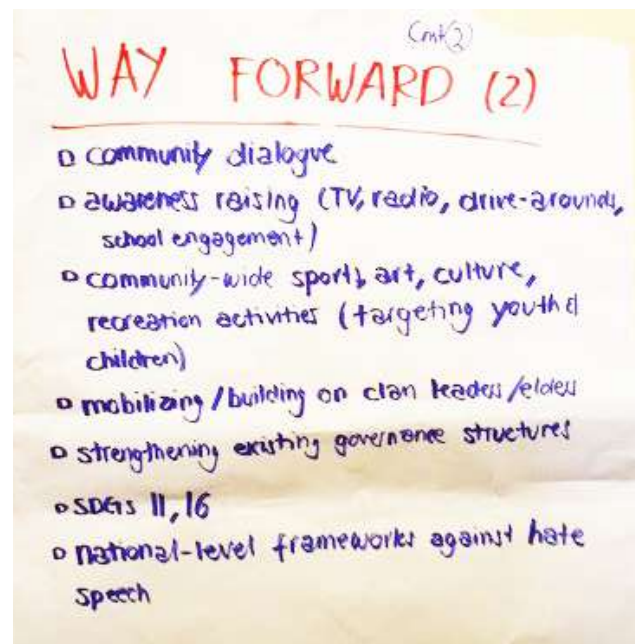 Cont(2)
WAY FORWARD (2)
community dialogue
awareness raising (TV, radio, drive-arounds,
school engagement)
community-wide sport, art, culture,
recreation activities (targeting youth &
children)
mobilizing / building on clan leaders/elders
strengthening existing governance structures
SDGs 11, 16
national-level frameworks against hate
speech